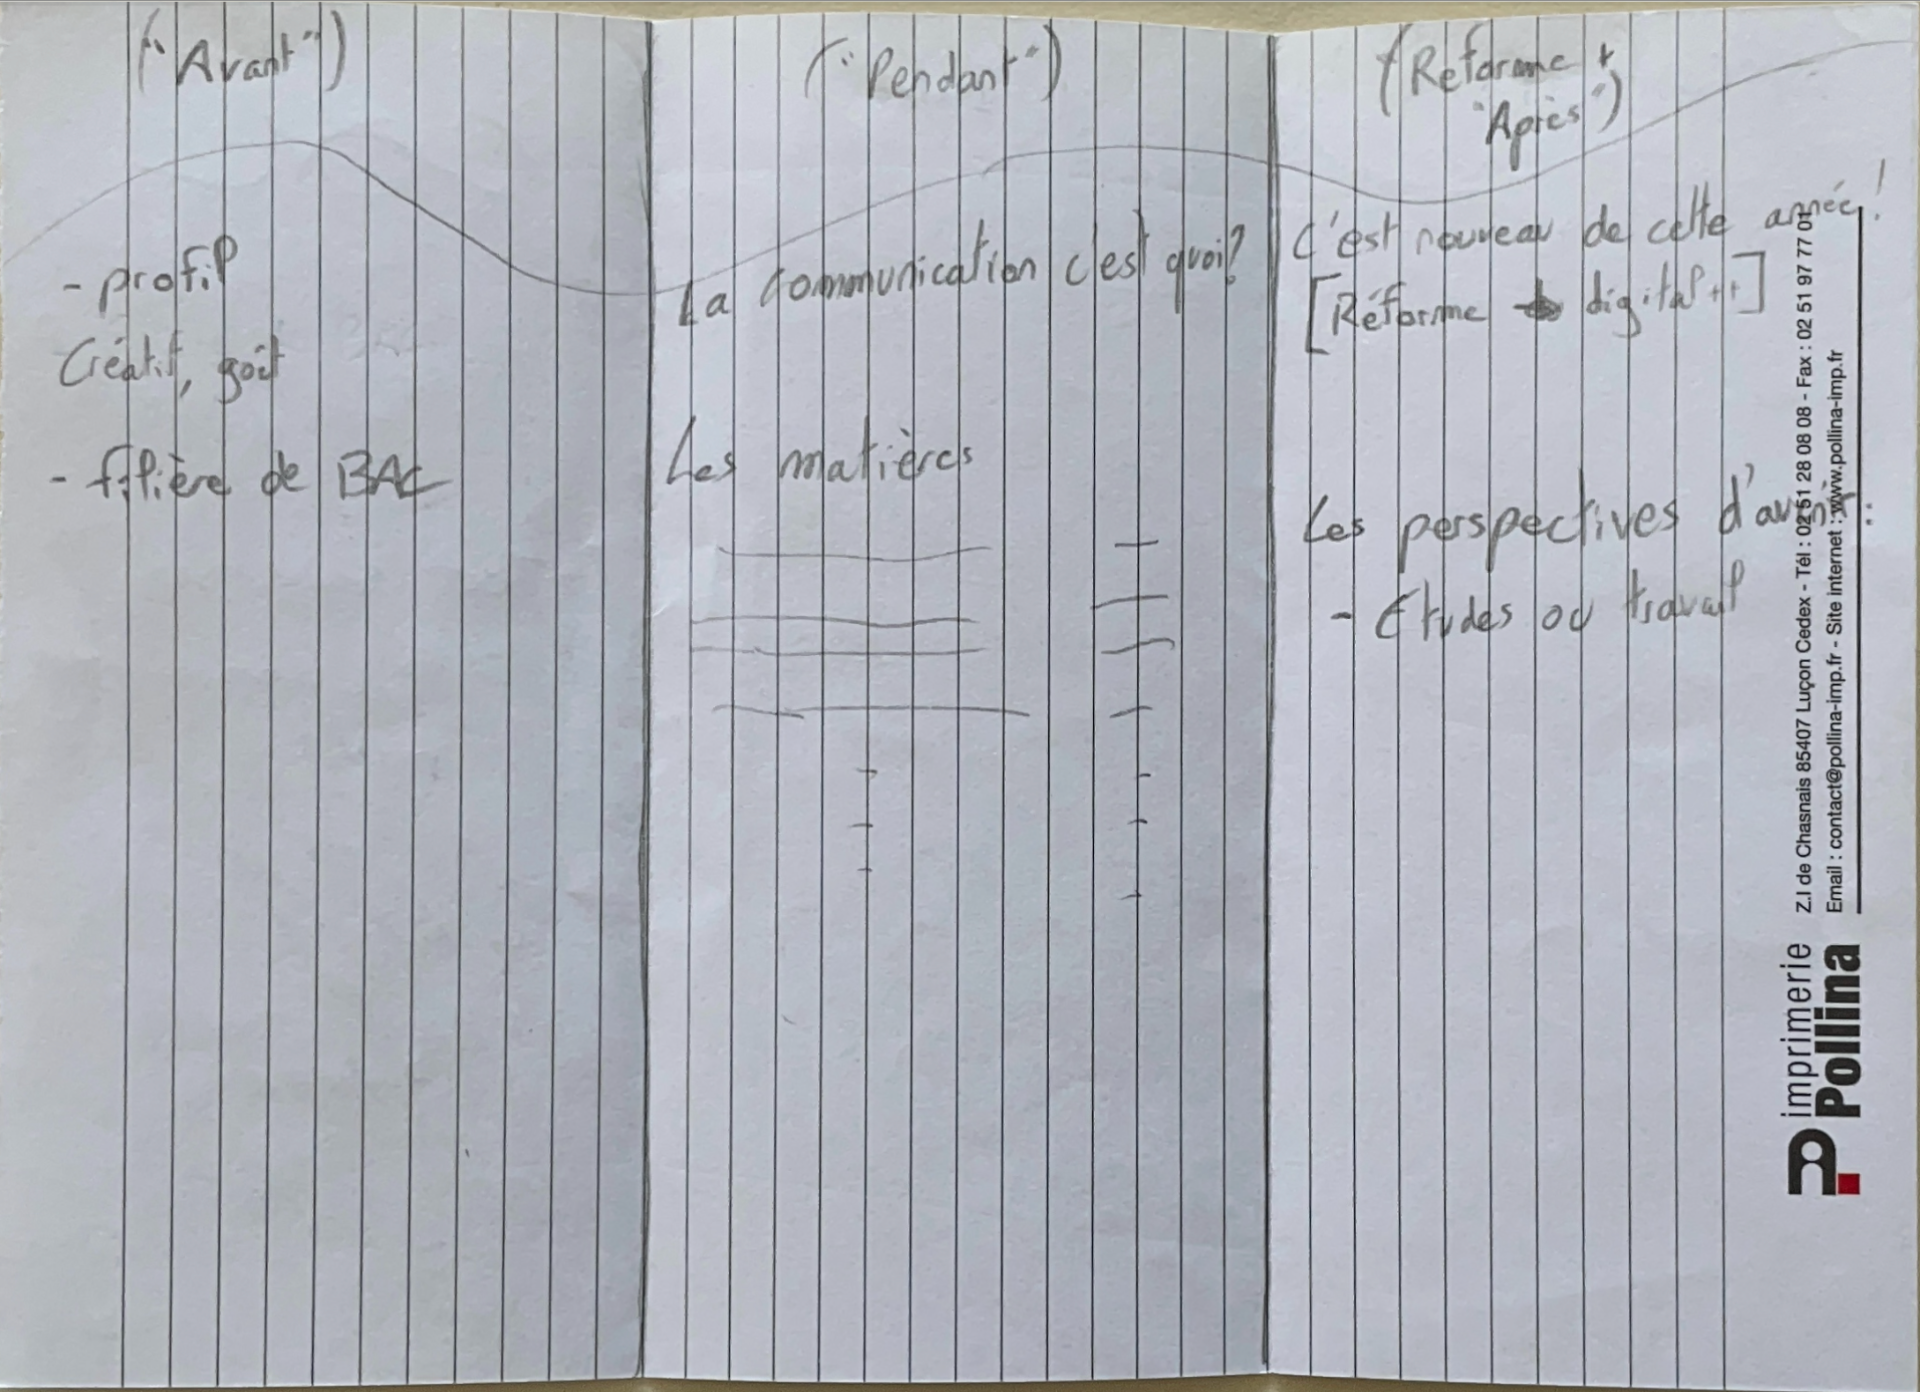 ("Avant")
- profil
Créatif, goût
- filière de BAC
("Pendant")
La communication c'est quoi?
Les matières
(Réforme +
"Après")
C'est nouveau de cette année!
[Réforme digital ++]
Les perspectives d'avenir :
- Etudes ou travail
imprimerie
Pollina
Z.I de Chasnais 85407 Luçon Cedex - Tél : 02 51 28 08 08 - Fax : 02 51 97 77 01
Email : contact@pollina-imp.fr - Site internet : www.pollina-imp.fr